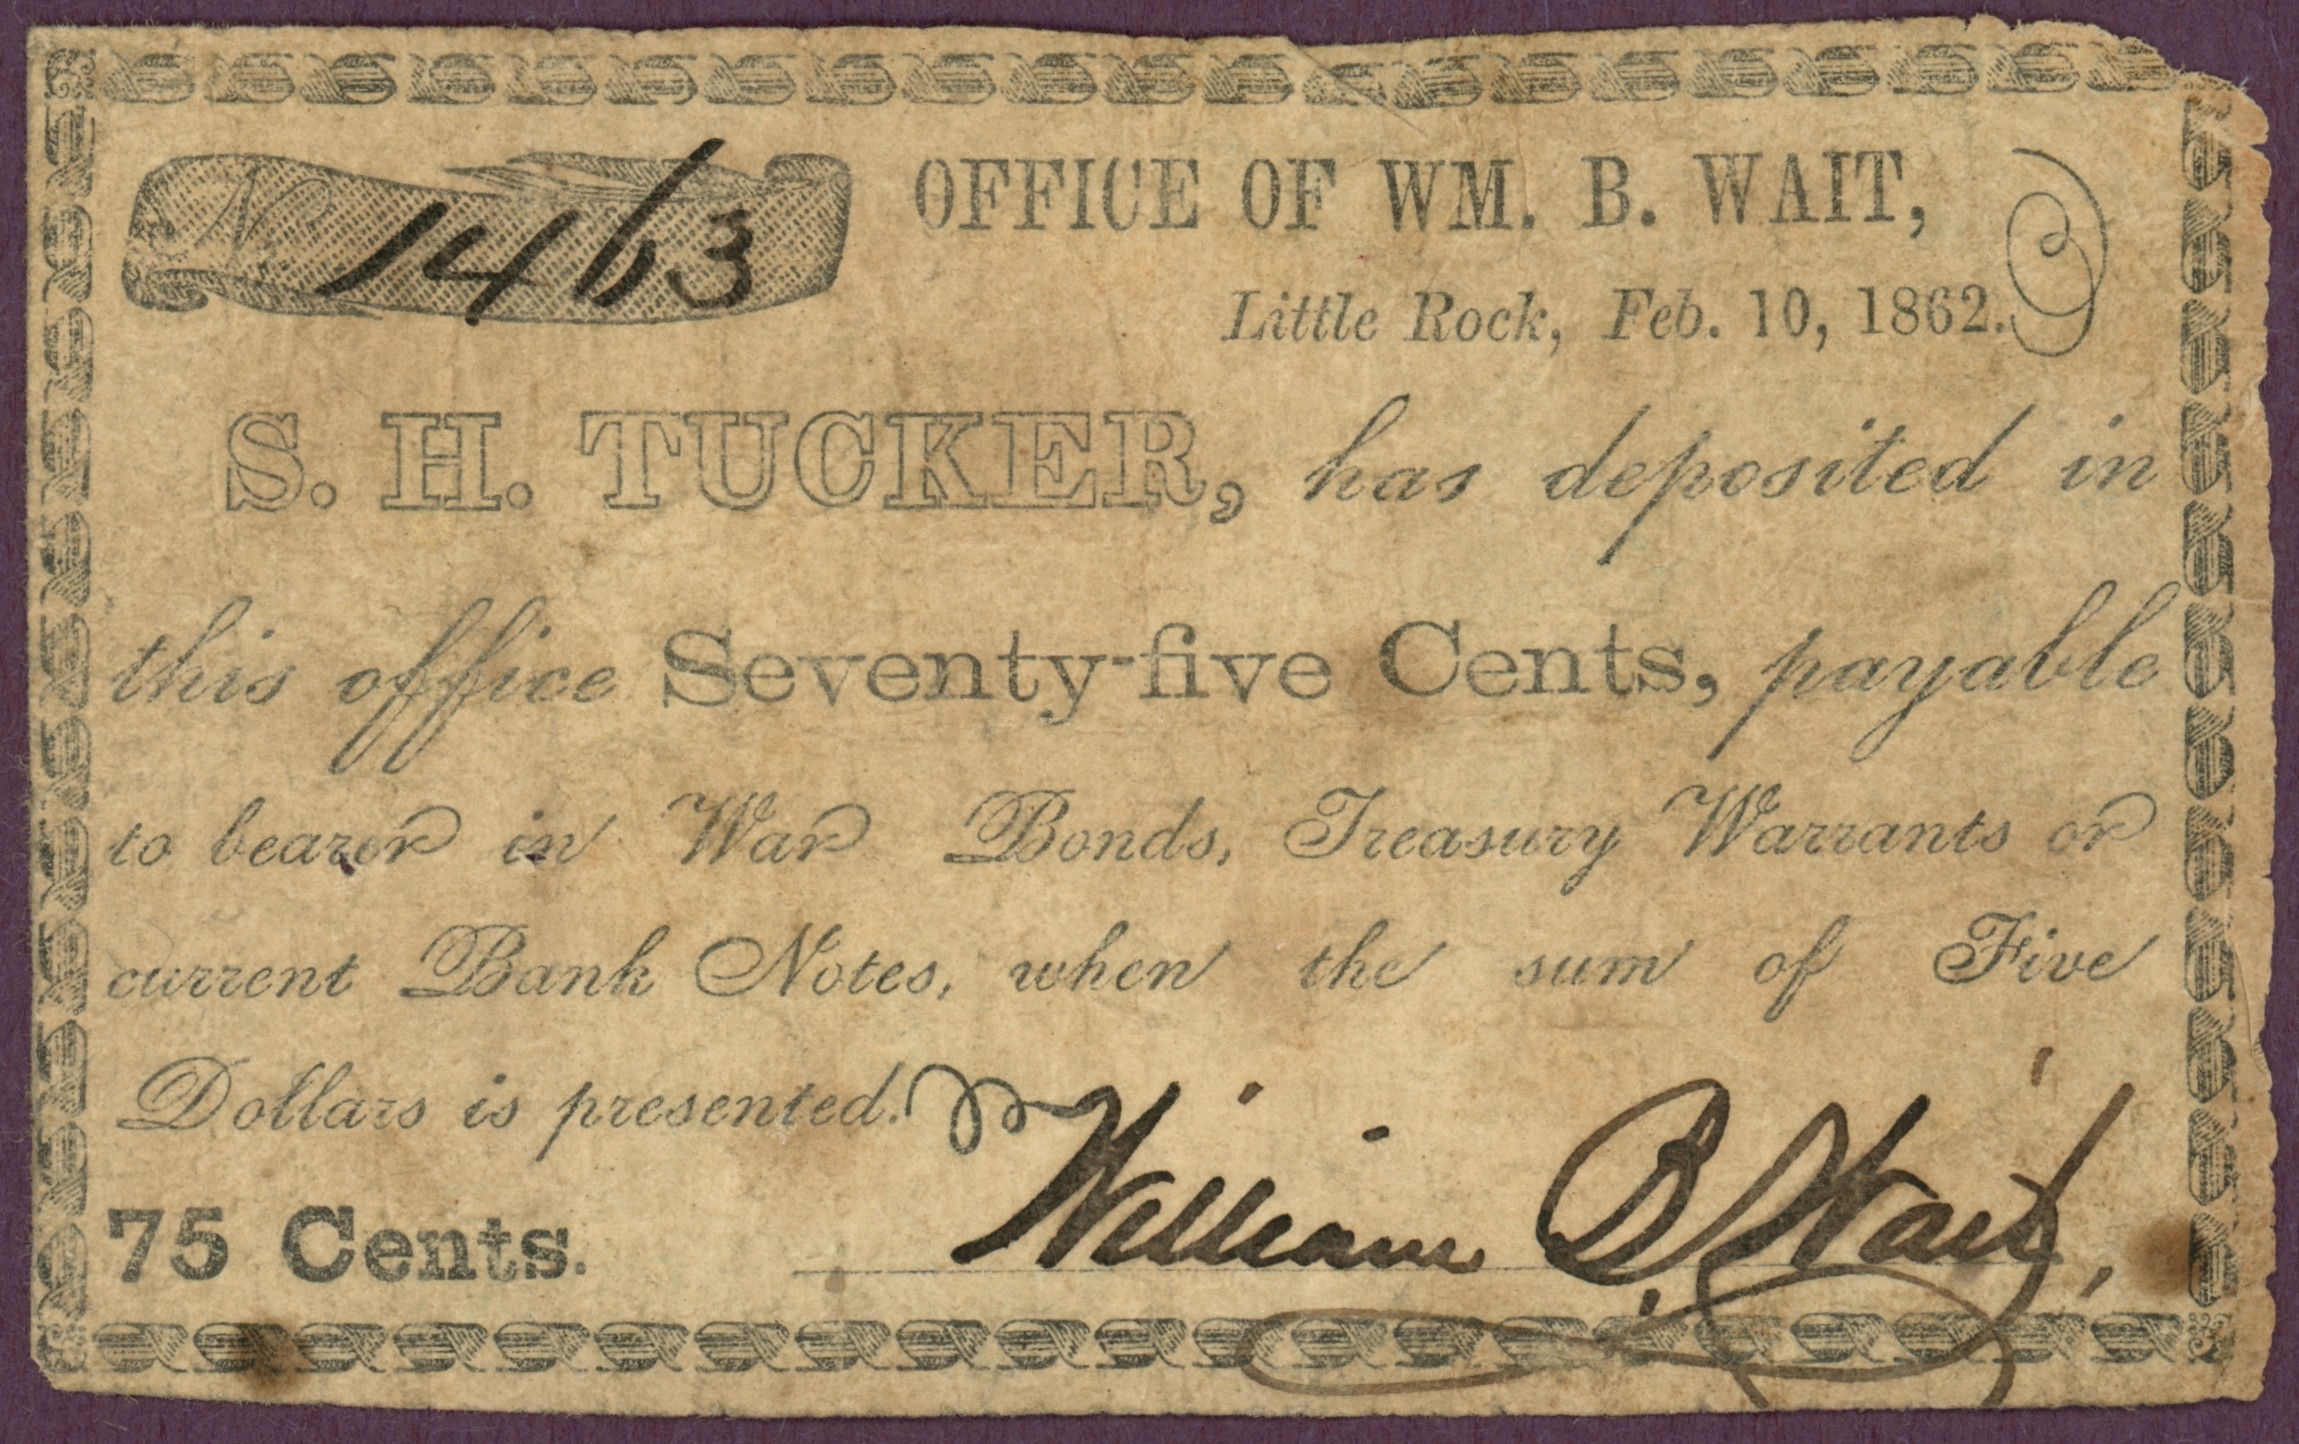 No 1463
OFFICE OF WM. B. WAIT,
Little Rock, Feb. 10, 1862.
S. H. TUCKER, has deposited in
this office Seventy-five Cents, payable
to bearer in War Bonds, Treasury Warrants or
current Bank Notes, when the sum of Five
Dollars is presented.
William B. Wait,
75 Cents.